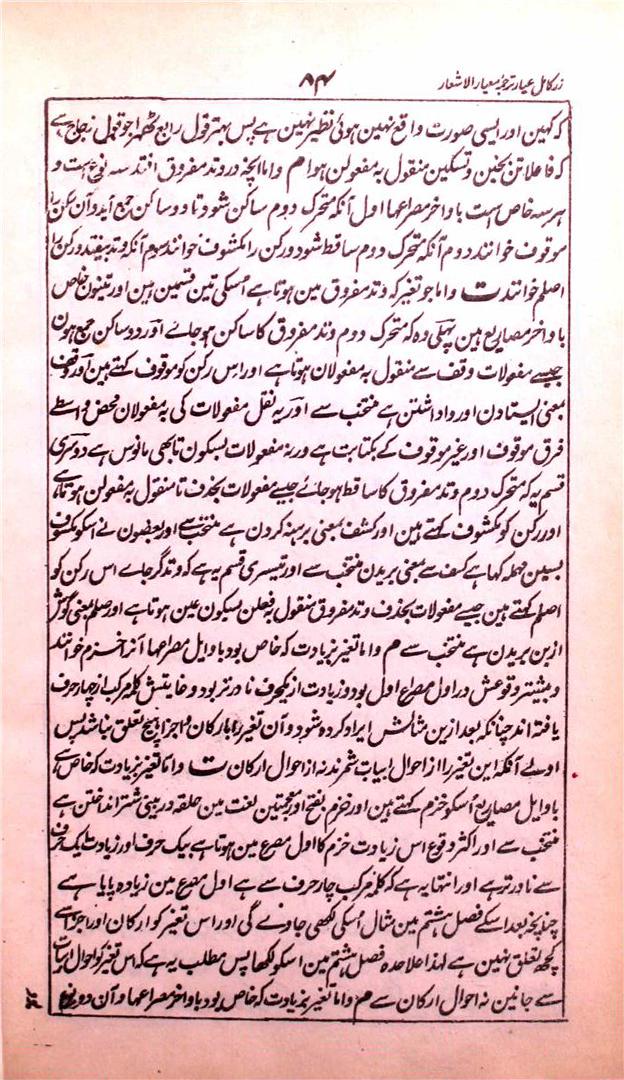 زر کامل عیار ترجمۂ معیار الاشعار
۸۴
کہ کہین اور ایسی صورت واقع نہین ہوئی نظیر نہین ہے پس بہتر قول رابع ٹھہرا جو قول زجاج ہے
کہ فاعلاتن بخبن و تسکین منقول بہ مفعولن ہوا م واما آنچہ در وتد مفروق افتد سہ نوع ست و
ہر سہ خاص است باواخر مصراعہا اول آنکہ متحرک دوم ساکن شود تا دو ساکن جمع آید و آن رکن را
موقوف خوانند دوم آنکہ متحرک دوم ساقط شود و رکن را مکشوف خوانند سوم آنکہ وتد بیفتد و رکن را
اصلم خوانند ت واما جو تغیر کہ وتد مفروق مین ہوتا ہے اُسکی تین قسمین ہین اور تینون خاص
باواخر مصاریع ہین پہلی وہ کہ متحرک دوم وتد مفروق کا ساکن ہو جاے اور دو ساکن جمع ہون
جیسے مفعولات وقف سے منقول بہ مفعولان ہوتا ہے اور اس رکن کو موقوف کہتے ہین اور وقف
بمعنی ایستادن اور وا داشتن ہے منتخب سے اور یہ نقل مفعولات کی بہ مفعولان محض واسطے
فرق موقوف اور غیر موقوف کے بکتابت ہے ورنہ مفعولات بسکون تا بھی مانوس ہے دوسری
قسم یہ کہ متحرک دوم وتد مفروق کا ساقط ہو جائے جیسے مفعولات بحذف تا منقول بہ مفعولن ہوتا ہے
اور رکن کو مکشوف کہتے ہین اور کشف بمعنی برہنہ کردن ہے منتخب سے اور بعضون نے اسکو مکسوف
بسین مہملہ کہا ہے کسف سے بمعنی بریدن منتخب سے اور تیسری قسم یہ ہے کہ وتد گر جاے اس رکن کو
اصلم کہتے ہین جیسے مفعولات بحذف وتد مفروق منقول بہ فعلن بسکون عین ہوتا ہے اور صلم بمعنی گوش
از بن بریدن ہے منتخب سے م واما تغیر بزیادت کہ خاص بود باوایل مصراعہا آنرا خزم خوانند
و بیشتر وقوعش در اول مصراع اول بود و زیادت از یکحرف نادرتر بود و غایتش کلمہ مرکب از چہار حرف
یافتہ اند چنانکہ بعد ازین مثالش ایراد کردہ شود و آن تغیر را بارکان و اجزا ہیچ تعلق نباشد پس
اولے آنکہ این تغیر را از احوال ابیات شمرند نہ از احوال ارکان ت واما تغیر بزیادت کہ خاص ہے
باوایل مصاریع اُسکو خزم کہتے ہین اور خزم بفتح اور معجمتین لغت مین حلقہ در بینی شتر انداختن ہے
منتخب سے اور اکثر وقوع اس زیادت خزم کا اول مصرع مین ہوتا ہے بیک حرف اور زیادت ایک حرف
سے نادر تر ہے اور انتہا یہ ہے کہ کلمہ مرکب چار حرف سے ہے اول مصرع مین زیادہ پایا ہے
چنانچہ بعد اسکے فصل ہشتم مین مثال اُسکی لکھی جاوے گی اور اس تغیر کو ارکان اور اجزا سے
کچھ تعلق نہین ہے لہذا علاحدہ فصل ہشتم مین اسکو لکھا پس مطلب یہ ہے کہ اس تغیر کو احوال ابیات
سے جانین نہ احوال ارکان سے م واما تغیر بزیادت کہ خاص بود باواخر مصراعہا و آن دو نوع